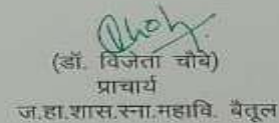 (डॉ. विजेता चौबे)
प्राचार्य
ज.हा.शास.स्ना.महावि. बैतूल